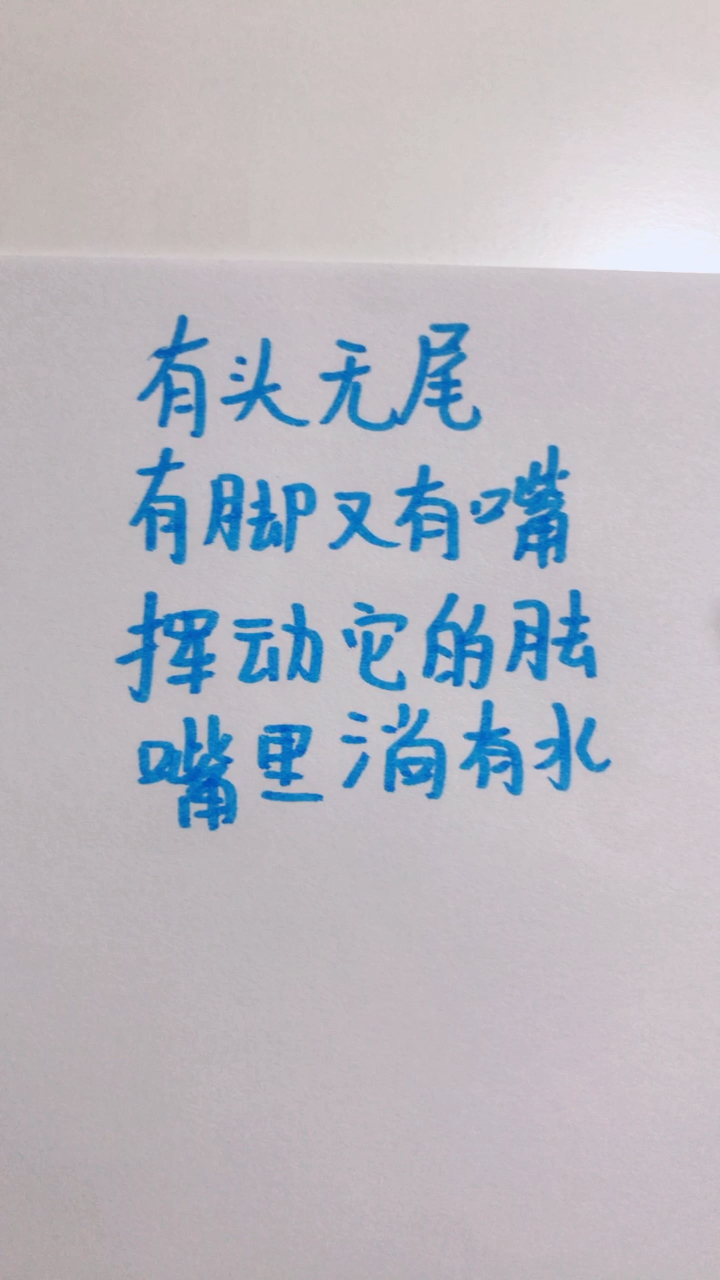 有头无尾
有脚又有嘴
挥动它的胠
嘴里淌有水